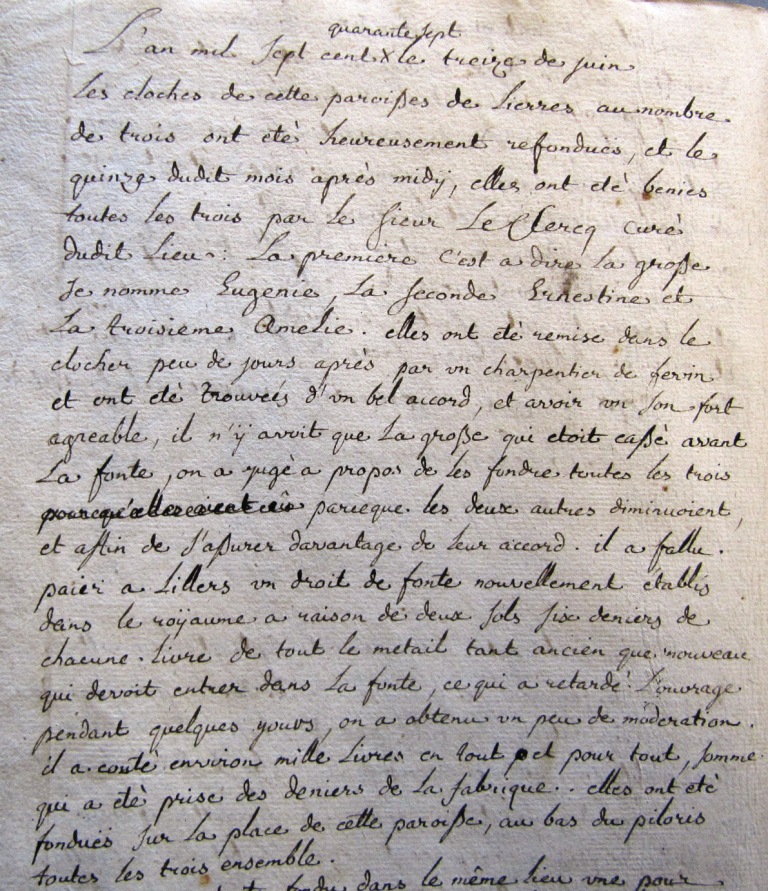 quarante sept
L'an mil sept cent x le treize de juin
les cloches de cette paroisses de Lierres au nombre
de trois ont eté heureusement refonduës, et le
quinze dudit mois aprés midÿ, elles ont eté benies
toutes les trois par le sieur Le Clercq curé
dudit lieu : La premiere c'est a dire la grosse
se nomme Eugenie, La seconde Ernestine et
La troisiéme Amelie. elles ont eté remise dans le
clocher peu de jours aprés par un charpentier de fervin
et ont eté trouveés d'un bel accord, et avoir un son fort
agreable, il n'ÿ avoit que La grosse qui etoit cassé avant
La fonte, on a jugé a propos de les fondre toutes les trois
parceque les deux autres diminuoient,
et affin de s'assurer davantage de leur accord. il a fallu
paier a Lillers un droit de fonte nouvellement établis
dans le roÿaume a raison de deux sols six deniers de
chacune livre de tout le metail tant ancien que nouveau
qui devoit entrer dans La fonte, ce qui a retardé L'ouvrage
pendant quelques yours, on a obtenu un peu de moderation.
il a couté environ mille Livres en tout et pour tout, somme
qui a eté prise des deniers de La fabrique.. elles ont eté
fonduës sur la place de cette paroisse, au bas du piloris
toutes les trois ensemble.
fondu dans le même lieu une pour